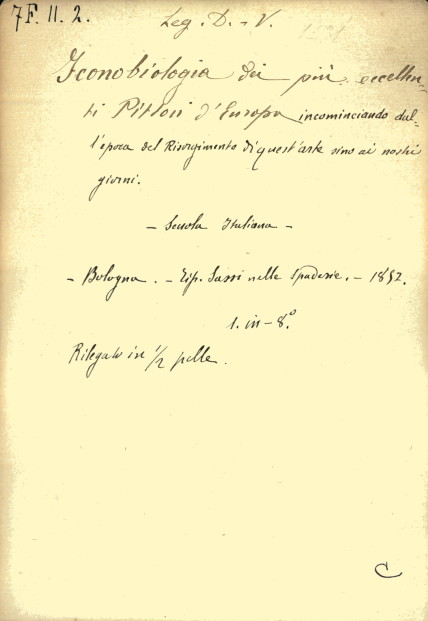 7F. II. 2.
Leg. D. - V.
Iconobiologia dei più eccellen-
ti Pittori d'Europa incominciando dal-
l'epoca del Risorgimento di quest'arte sino ai nostri
giorni.
- Scuola Italiana -
- Bologna. - Tip. Sassi nelle Spaderie. - 1852.
1. in-8.°
Rilegato in 1/2 pelle.
C